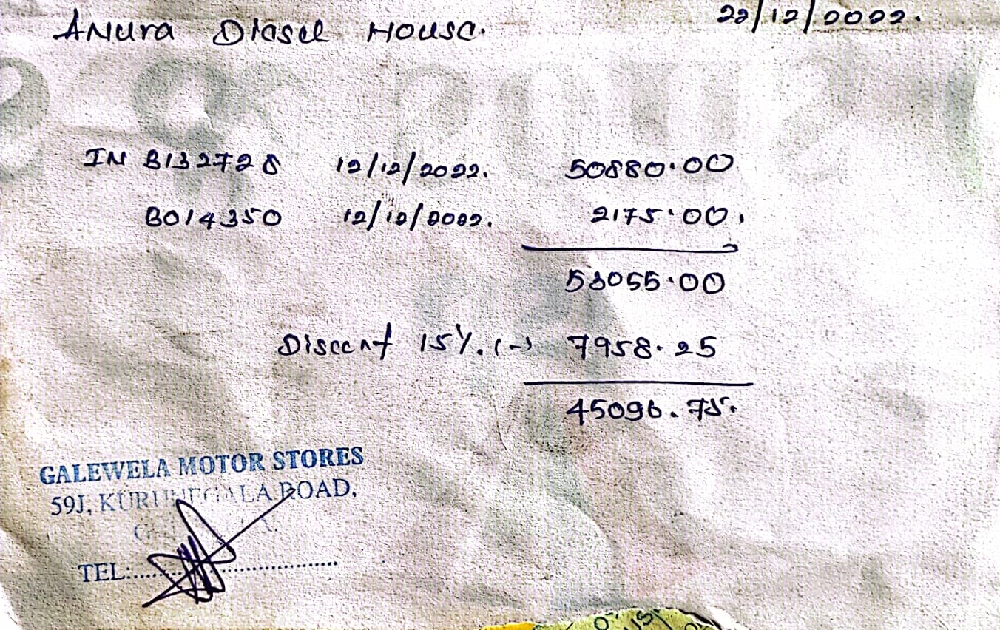 Anura Diasel House.
22/12/2022.
IN B132728 12/12/2022. 50880.00
B014350 12/12/2022. 2175.00
53055.00
Discont 15%. (-) 7958.25
45096.75
GALEWELA MOTOR STORES
59J, KURUNEGALA ROAD,
TEL: